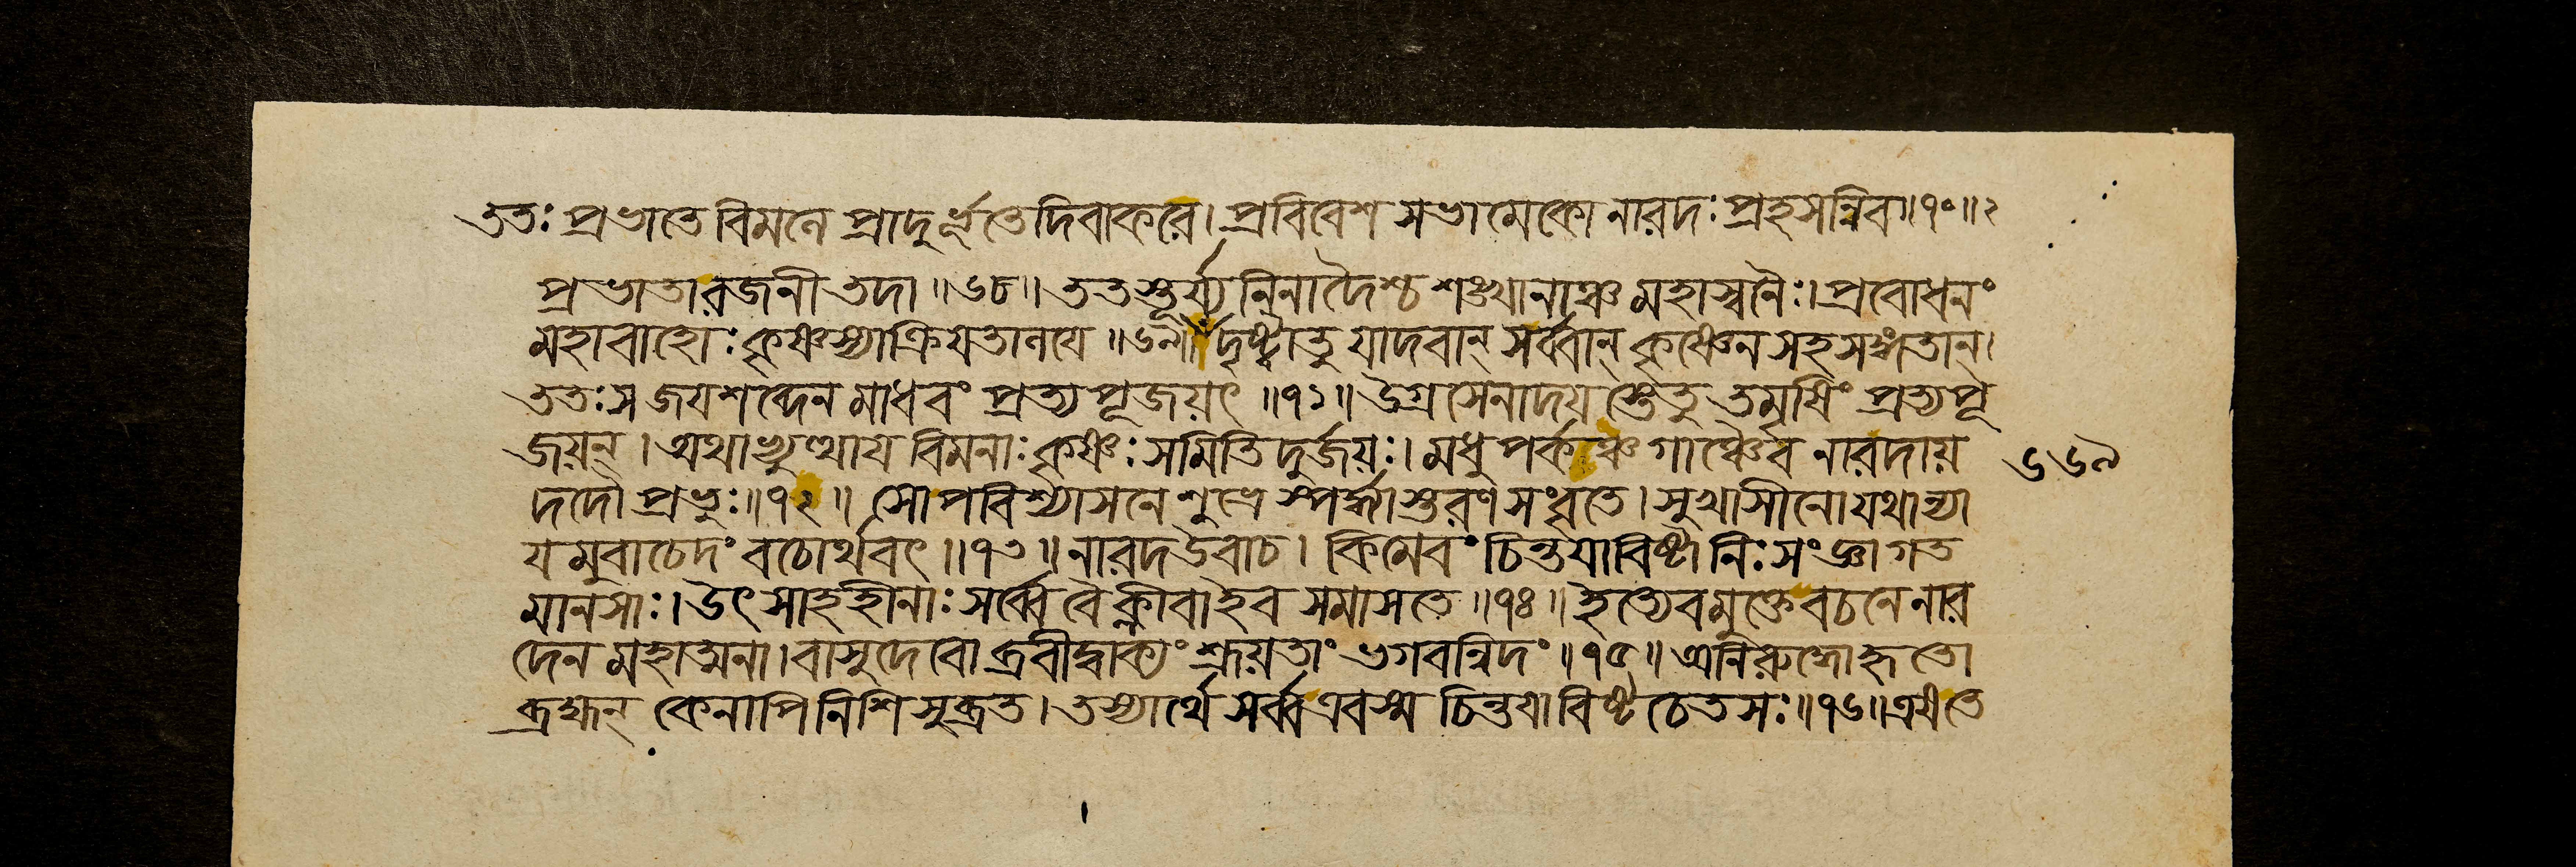 ততঃ প্রভাতে বিমলে প্রাদুর্ভূতে দিবাকরে। প্রবিবেশ সভামেকো নারদঃ প্রহসন্নিব॥৭০॥২
প্রভাতা রজনী তদা॥৬৮॥ ততস্তূর্য্যনিনাদৈশ্চ শঙ্খানাঞ্চ মহাস্বনৈঃ। প্রবোধনং
মহাবাহোঃ কৃষ্ণস্যাক্রিয়তালয়ে॥৬৯॥ দৃষ্ট্বা তু যাদবান্ সর্ব্বান্ কৃষ্ণেন সহ সঙ্গতান্।
ততঃ স জয়শব্দেন মাধবং প্রত্যপূজয়ৎ॥৭১॥ উগ্রসেনাদয়স্তে তু তমৃষিং প্রত্যপূ
জয়ন্। অথাভ্যুত্থায় বিমনাঃ কৃষ্ণঃ সমিতিদুর্জয়ঃ। মধুপর্কঞ্চ গাঞ্চৈব নারদায়
৬৬৯
দদৌ প্রভুঃ॥৭২॥ সোপবিশ্যাসনে শুভ্রে স্পর্দ্ধ্যাস্তরণসংবৃতে। সুখাসীনো যথান্যা
য়মুবাচেদং বচোর্থবৎ॥৭৩॥ নারদ উবাচ। কিমেবং চিন্তয়াবিষ্টা নিঃসংজ্ঞা গত
মানসাঃ। উৎসাহহীনাঃ সর্ব্বে বৈ ক্লীবা ইব সমাসতে॥৭৪॥ ইত্যেবমুক্তে বচনে নার
দেন মহাত্মনা। বাসুদেবো ব্রবীদ্বাক্যং শ্রূয়তাং ভগবন্নিদং॥৭৫॥ অনিরুদ্ধো হৃতো
ব্রহ্মন্ কেনাপি নিশি সুব্রত। তস্যার্থে সর্ব্ব এব স্ম চিন্তয়াবিষ্টচেতসঃ॥৭৬॥ এষ তে